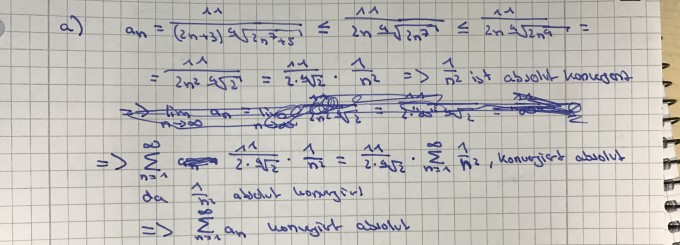 a) an = 11 / ((2n+3) ∜(2n⁷+5)) ≤ 11 / (2n ∜(2n⁷)) ≤ 11 / (2n ∜(2n⁴)) =
= 11 / (2n² ∜2) = 11 / (2·∜2) · 1/n² => 1/n² ist absolut konvergent
=> lim n→∞ an = lim n→∞
=> ∑ n=1 ∞ 11 / (2·∜2) · 1/n² = 11 / (2·∜2) · ∑ n=1 ∞ 1/n², konvergiert absolut
da 1/n² absolut konvergiert
=> ∑ n=1 ∞ an konvergiert absolut